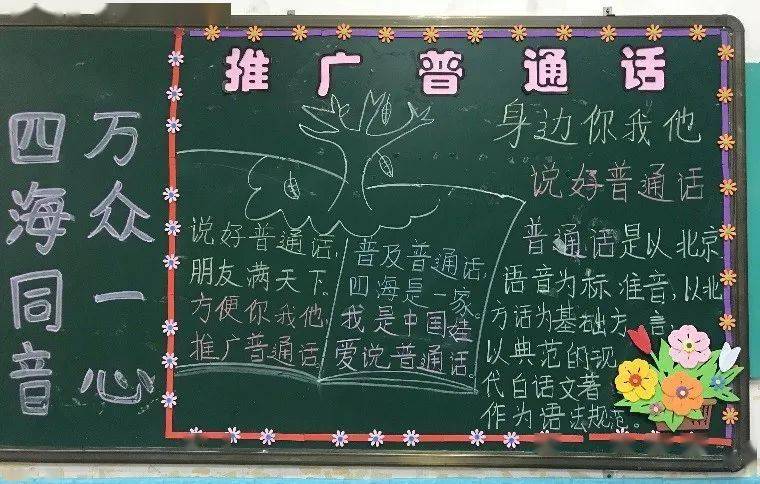 四海同音
万众一心
推广普通话
身边你我他
说好普通话
说好普通话,
朋友满天下。
方便你我他,
推广普通话
普及普通话,
四海是一家。
我是中国娃
爱说普通话。
普通话是以北京
语音为标准音,以北
方话为基础方言,
以典范的现
代白话文著
作为语法规范。